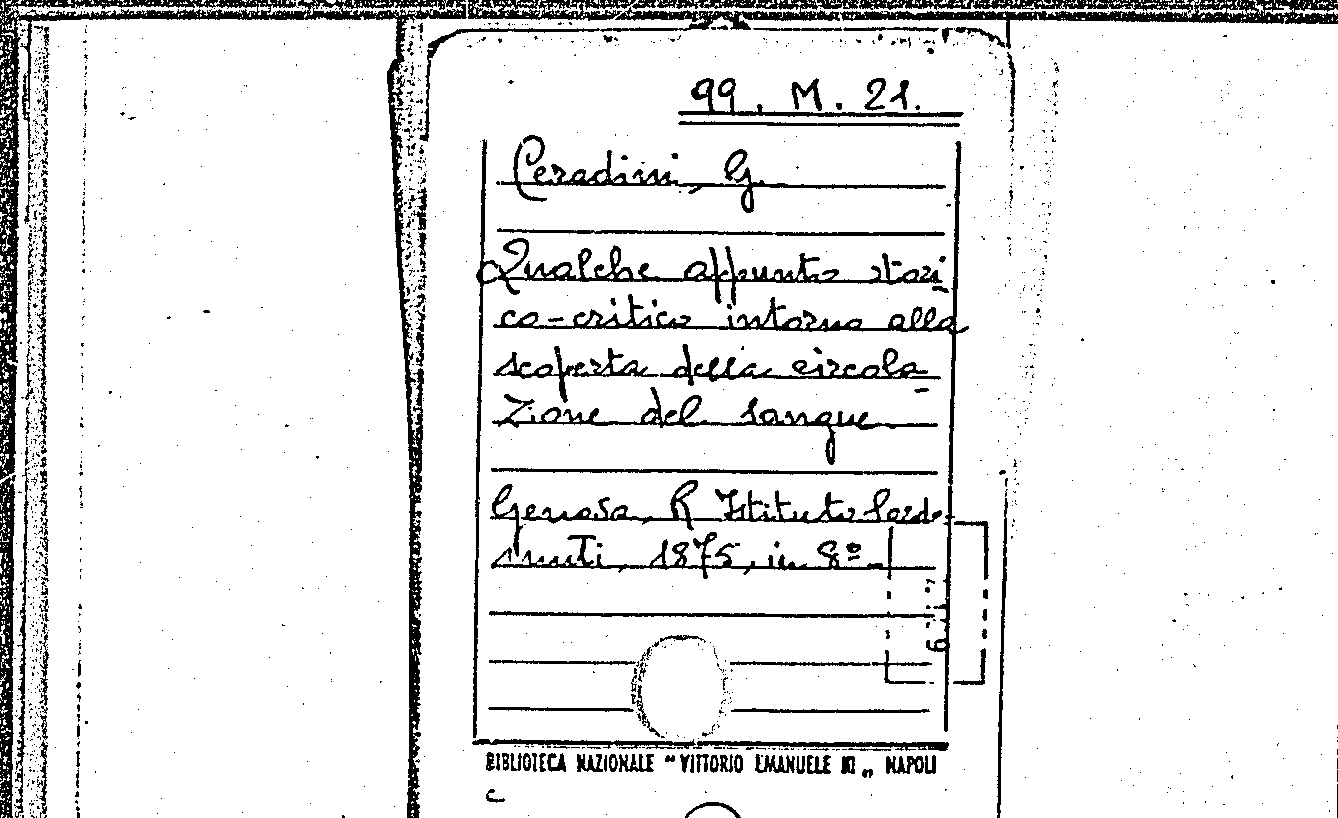 99. M. 21.
Ceradini, G.
Qualche appunto stori
co-critico intorno alla
scoperta della circola-
zione del sangue
Genova, R Istituto Sordo-
muti, 1875, in 8º
BIBLIOTECA NAZIONALE "VITTORIO EMANUELE III" NAPOLI
C